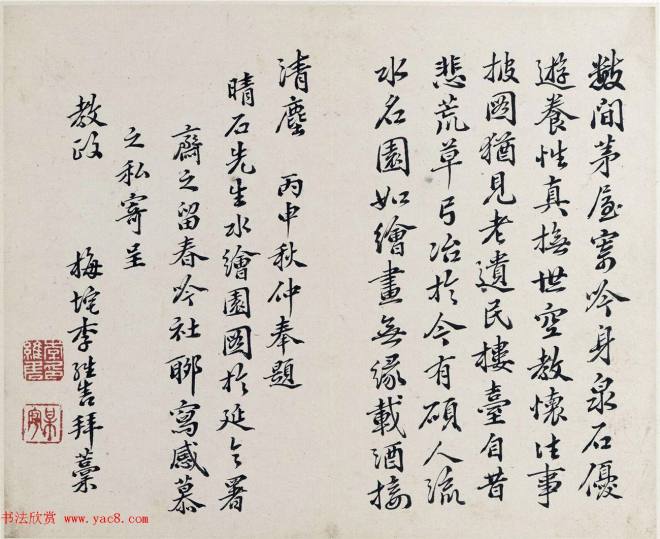 數間茅屋寄吟身泉石優
遊養性真撫世空教懷往事
披圖猶見老遺民樓臺自昔
悲荒草弓冶於今有碩人流
水名園如繪畫無緣載酒接
清塵 丙申秋仲奉題
晴石先生水繪園圖於延令署
齋之留春吟社聊寫感慕
之私寄呈
教政 梅垞李維拜藁
书法欣赏 www.yac8.com